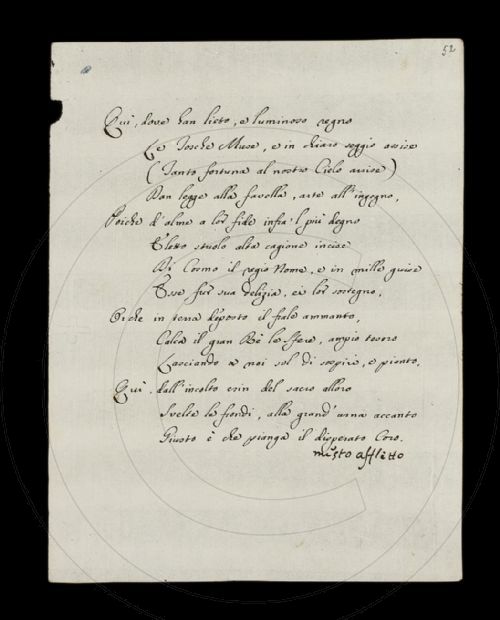 52
Qui, dove han lieto, e luminoso regno
Le Tosche Muse, e in chiaro seggio assise
(Tanto fortuna al nostro Cielo arrise)
Dan legge alla favella, arte all'ingegno,
Poiche d'alme a lor fide infra 'l più degno
Eletto stuolo alta cagione incise
Di Cosmo il regio Nome, e in mille guise
Esse fur sua delizia, ei lor sostegno,
Or che in terra deposto il frale ammanto,
Calca il gran Rè le sfere, ampio tesoro
Lasciando a noi sol di sospiri, e pianto,
Qui, dall'incolto crin del sacro alloro
Svelte le frondi, alla grand'urna accanto
Giusto è che pianga il disperato Coro.
misto afflitto